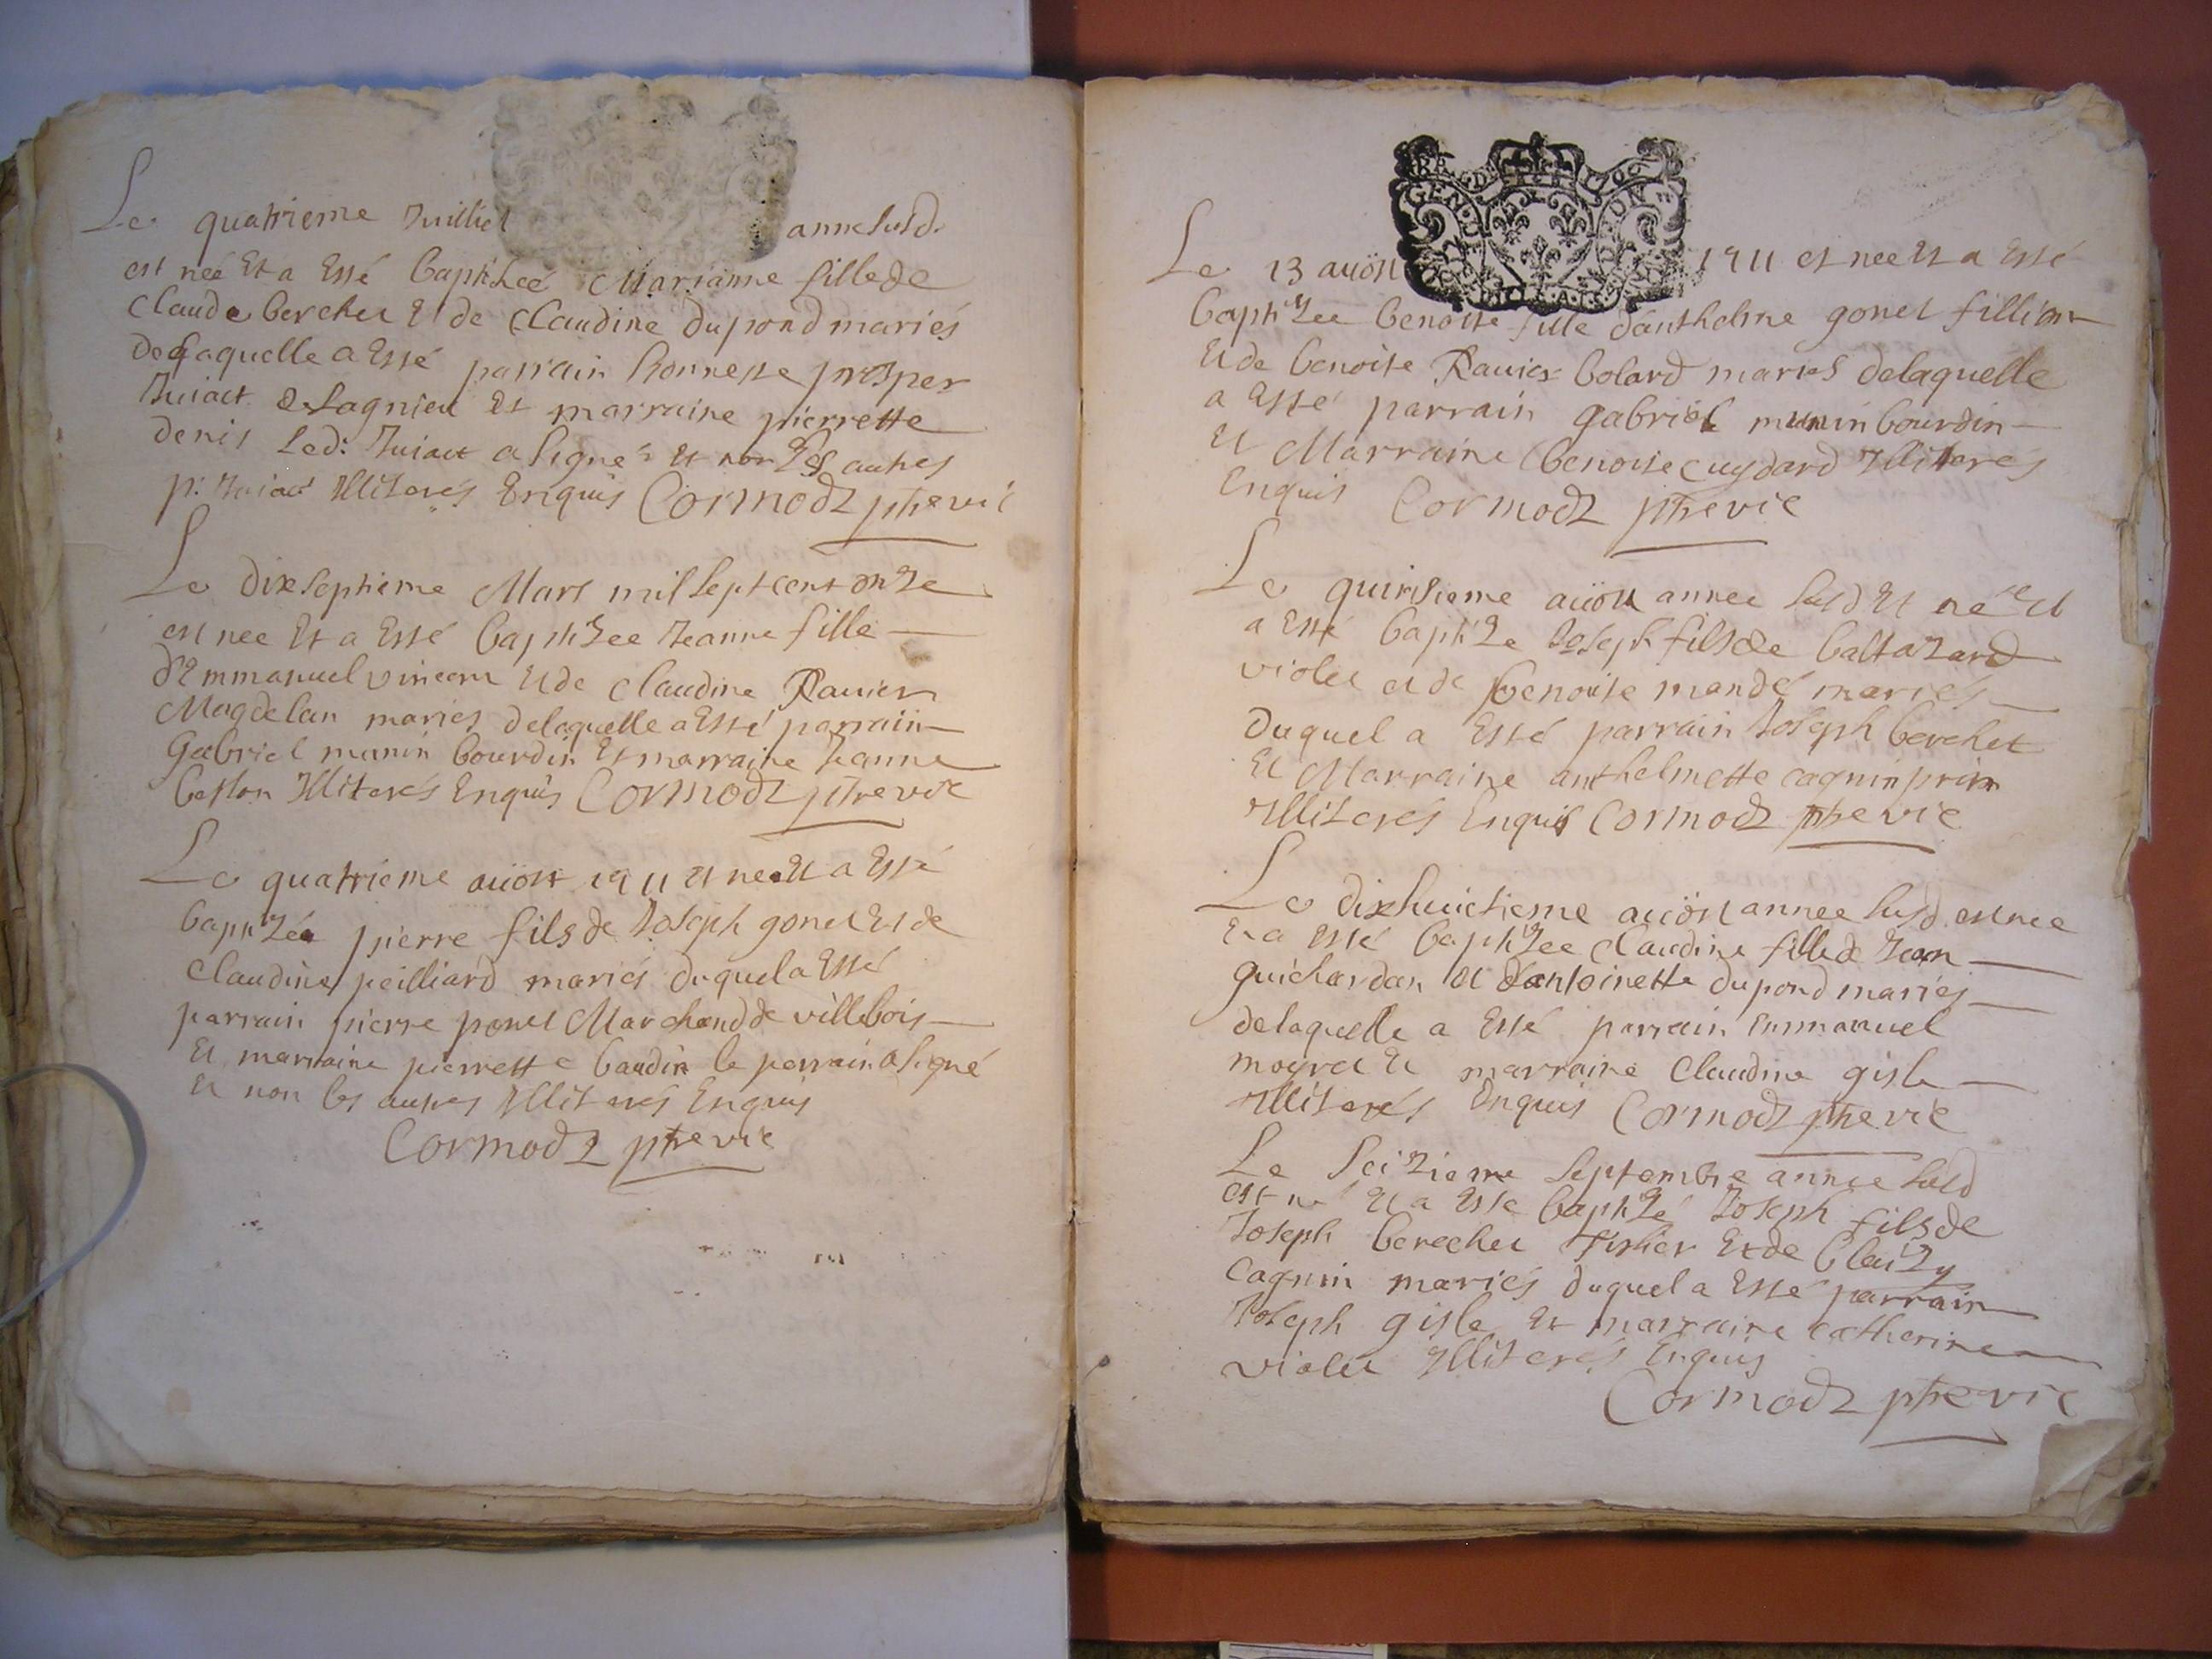 Le quatrieme Juillet annee susd.
est neé Et a Esté baptiseé Marianne fille de
Claude berchet & de Claudine dupond mariés
de laquelle a Esté parrain honneste prosper
Juiact de Lagnieu Et marraine pierrette
denis led: Juiact a signe Et non les autres
p: Juiact Illiterés Enquis Cormodz ptre vic
Le dixseptieme Mars mil sept cent onze
est nee Et a Esté baptizee Jeanne fille
d'Emmanuel vincent Et de Claudine Ravier
Magdelan mariés de laquelle a Esté parrain
Gabriel munin bourdin Et marraine Jeanne
beston Illiterés Enquis Cormodz ptre vic
Le quatrieme aiiöst 1711 Et ne Et a Esté
baptizé pierre fils de Joseph gonet Et de
Claudine peilliard mariés duquel a Esté
parrain pierre ponet Marchand de villebois
Et marraine pierrette baudin le parrain a signé
Et non les autres Illiterés Enquis
Cormodz ptre vic
GEN. D
Le 13 auöst 1711 est nee Et a Esté
baptizee benoite fille d'anthelme gonet fillion
Et de benoite Ravier bolard mariés delaquelle
a Esté parrain gabriel munin bourdin
Et Marraine benoite cuydard Illiterés
Enquis Cormodz ptre vic
Le quinsieme aiiöst annee susd Et né Et
a Esté baptize Joseph fils de baltazard
violet et de benoite mandé mariés
duquel a Esté parrain Joseph berchet
Et Marraine anthelmette cagnin prin
Illiterés Enquis Cormodz ptre vic
Le dixhuictieme aiiöst annee susd. est nee
Et a Esté baptizee Claudine fille de Jean
guichardan Et d'antoinette dupond mariés
delaquelle a Esté parrain Emmanuel
moyret Et marraine Claudine gisle
Illiterés Enquis Cormodz ptre vic
Le seizieme septembre annee susd
est né Et a Esté baptizé Joseph fils de
Joseph berechet Et de Clauzy
Cagnin mariés duquel a Esté parrain
Joseph gisle Et marraine catherine
violet Illiterés Enquis
Cormodz ptre vic